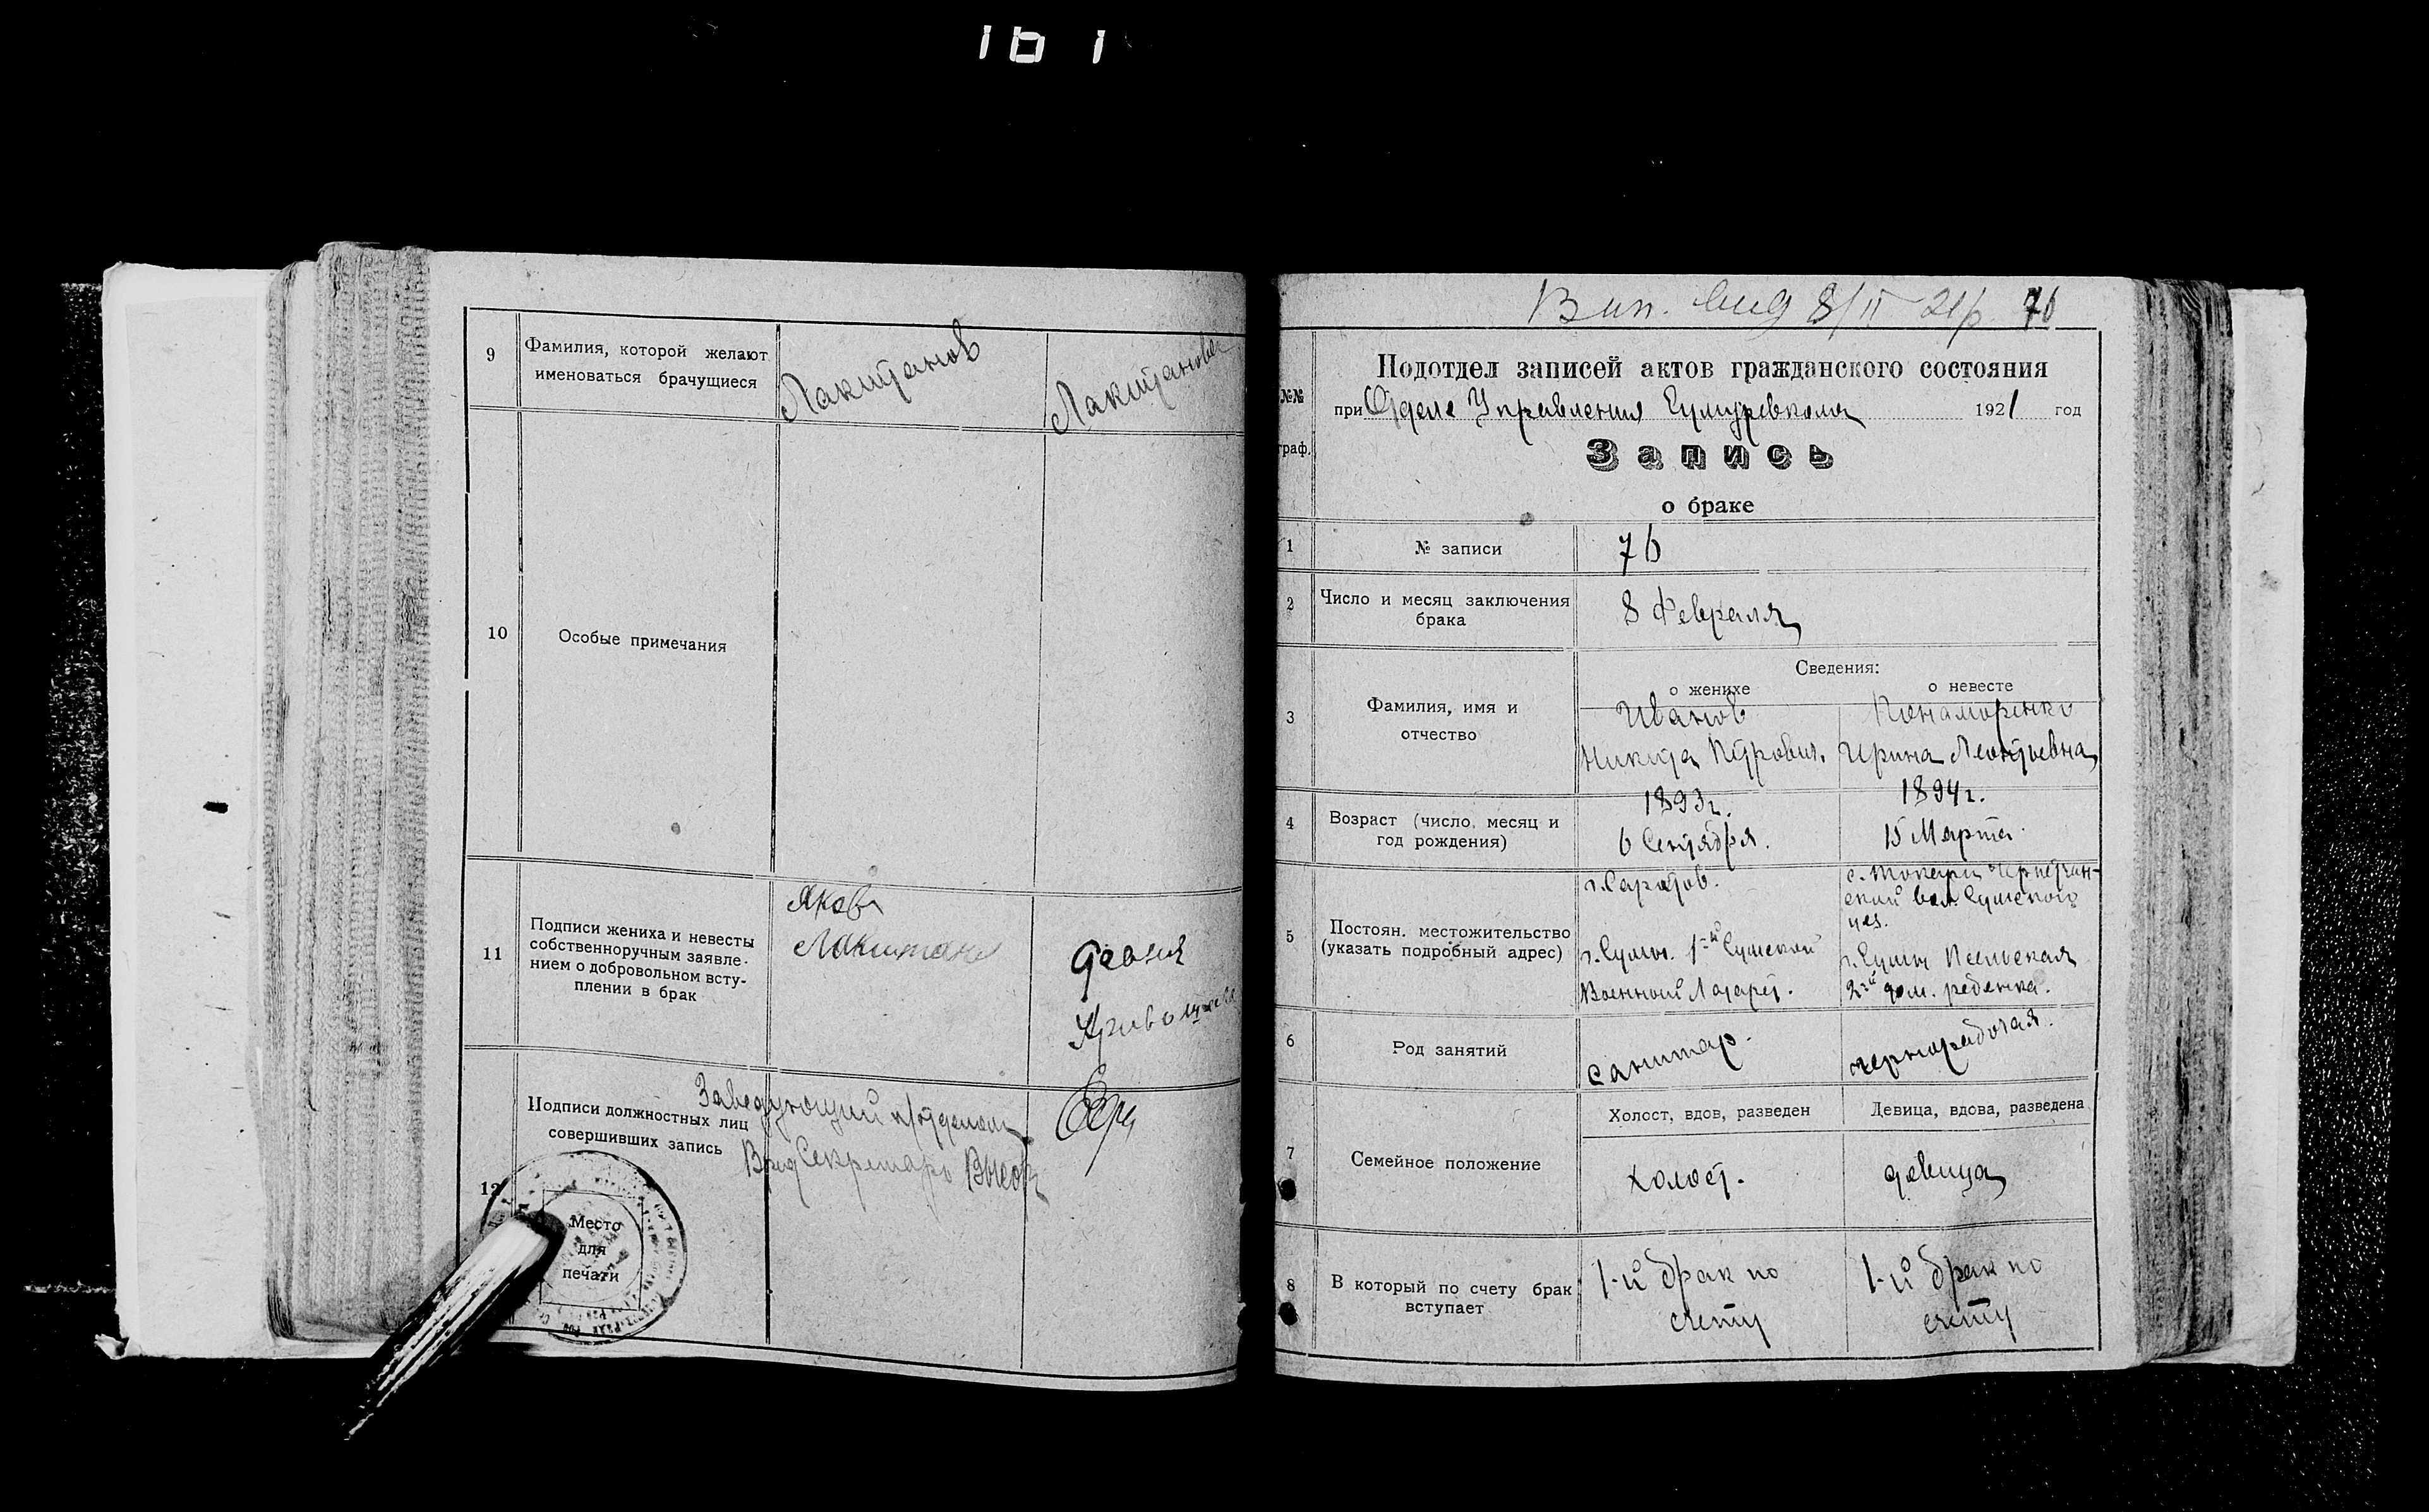 161
9
Фамилия, которой желают
именоваться брачущиеся
Лакштанов
Лакштанова
10
Особые примечания
11
Подписи жениха и невесты
собственноручным заявле-
нием о добровольном всту-
плении в брак
Яков
Лакштан
12
Подписи должностных лиц
совершивших запись
Заведующий п/отделом
Врид Секретарь
Место
для
печати
8/II 21 76
№№
граф.
Подотдел записей актов гражданского состояния
при Отделе Управления Сумуревкома 1921 год
Запись
о браке
1
№ записи
76
2
Число и месяц заключения
брака
8 Февраля
Сведения:
о женихе
о невесте
3
Фамилия, имя и
отчество
Иванов
Никита Петрович.
Понаморенко
Ирина Леонтьевна
4
Возраст (число, месяц и
год рождения)
1893 г.
6 Сентября.
1894 г.
15 Марта.
5
Постоян. местожительство
(указать подробный адрес)
г. Саратов.
г. Сумы. 1-й Сумской
Военный Лазарет.
с. Токари Чернетчин-
ской вол. Сумского
уез.
г. Сумы Псельская
2й дом. ребенка.
6
Род занятий
санитар.
чернорабочая.
7
Семейное положение
Холост, вдов, разведен
Девица, вдова, разведена
холост.
девица
8
В который по счету брак
вступает
1-й брак по
счету
1-й брак по
счету